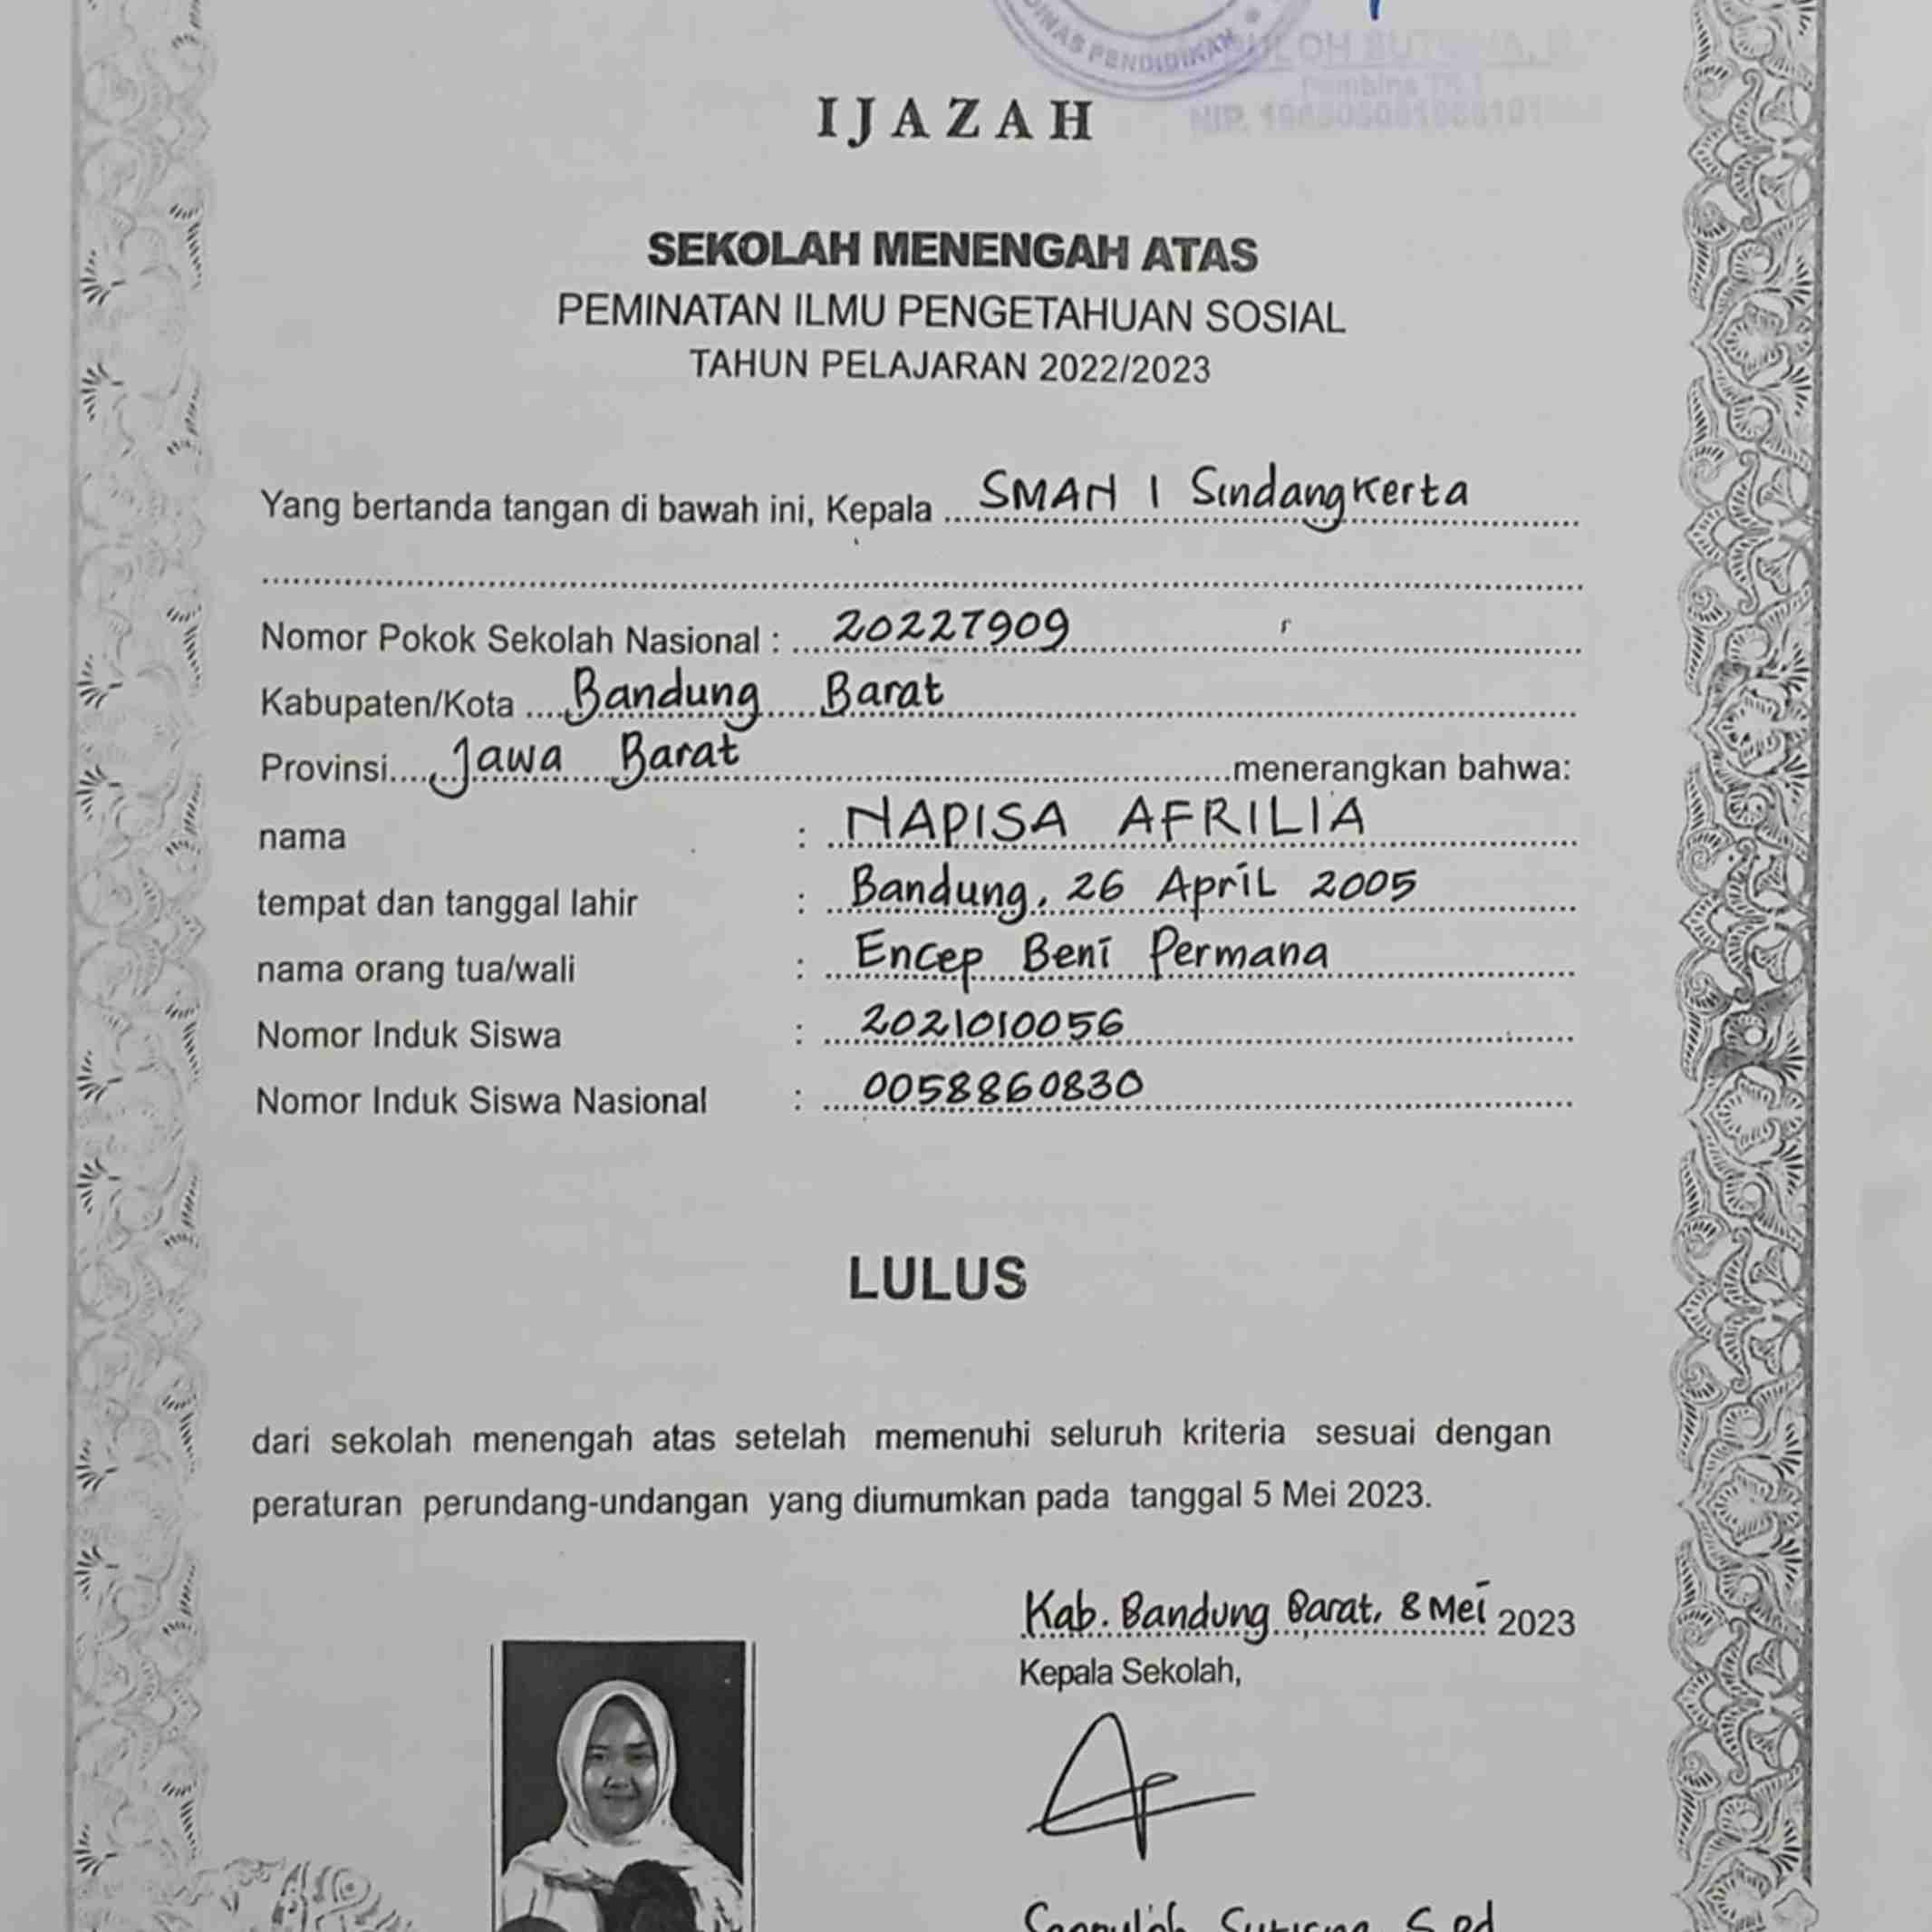 DINAS PENDIDIKAN
NIP.
IJAZAH
SEKOLAH MENENGAH ATAS
PEMINATAN ILMU PENGETAHUAN SOSIAL
TAHUN PELAJARAN 2022/2023
Yang bertanda tangan di bawah ini, Kepala SMAN 1 Sindangkerta
Nomor Pokok Sekolah Nasional : 20227909
Kabupaten/Kota Bandung Barat
Provinsi Jawa Barat menerangkan bahwa:
nama : NAPISA AFRILIA
tempat dan tanggal lahir : Bandung, 26 April 2005
nama orang tua/wali : Encep Beni Permana
Nomor Induk Siswa : 2021010056
Nomor Induk Siswa Nasional : 0058860830
LULUS
dari sekolah menengah atas setelah memenuhi seluruh kriteria sesuai dengan
peraturan perundang-undangan yang diumumkan pada tanggal 5 Mei 2023.
Kab. Bandung Barat, 8 Mei 2023
Kepala Sekolah,